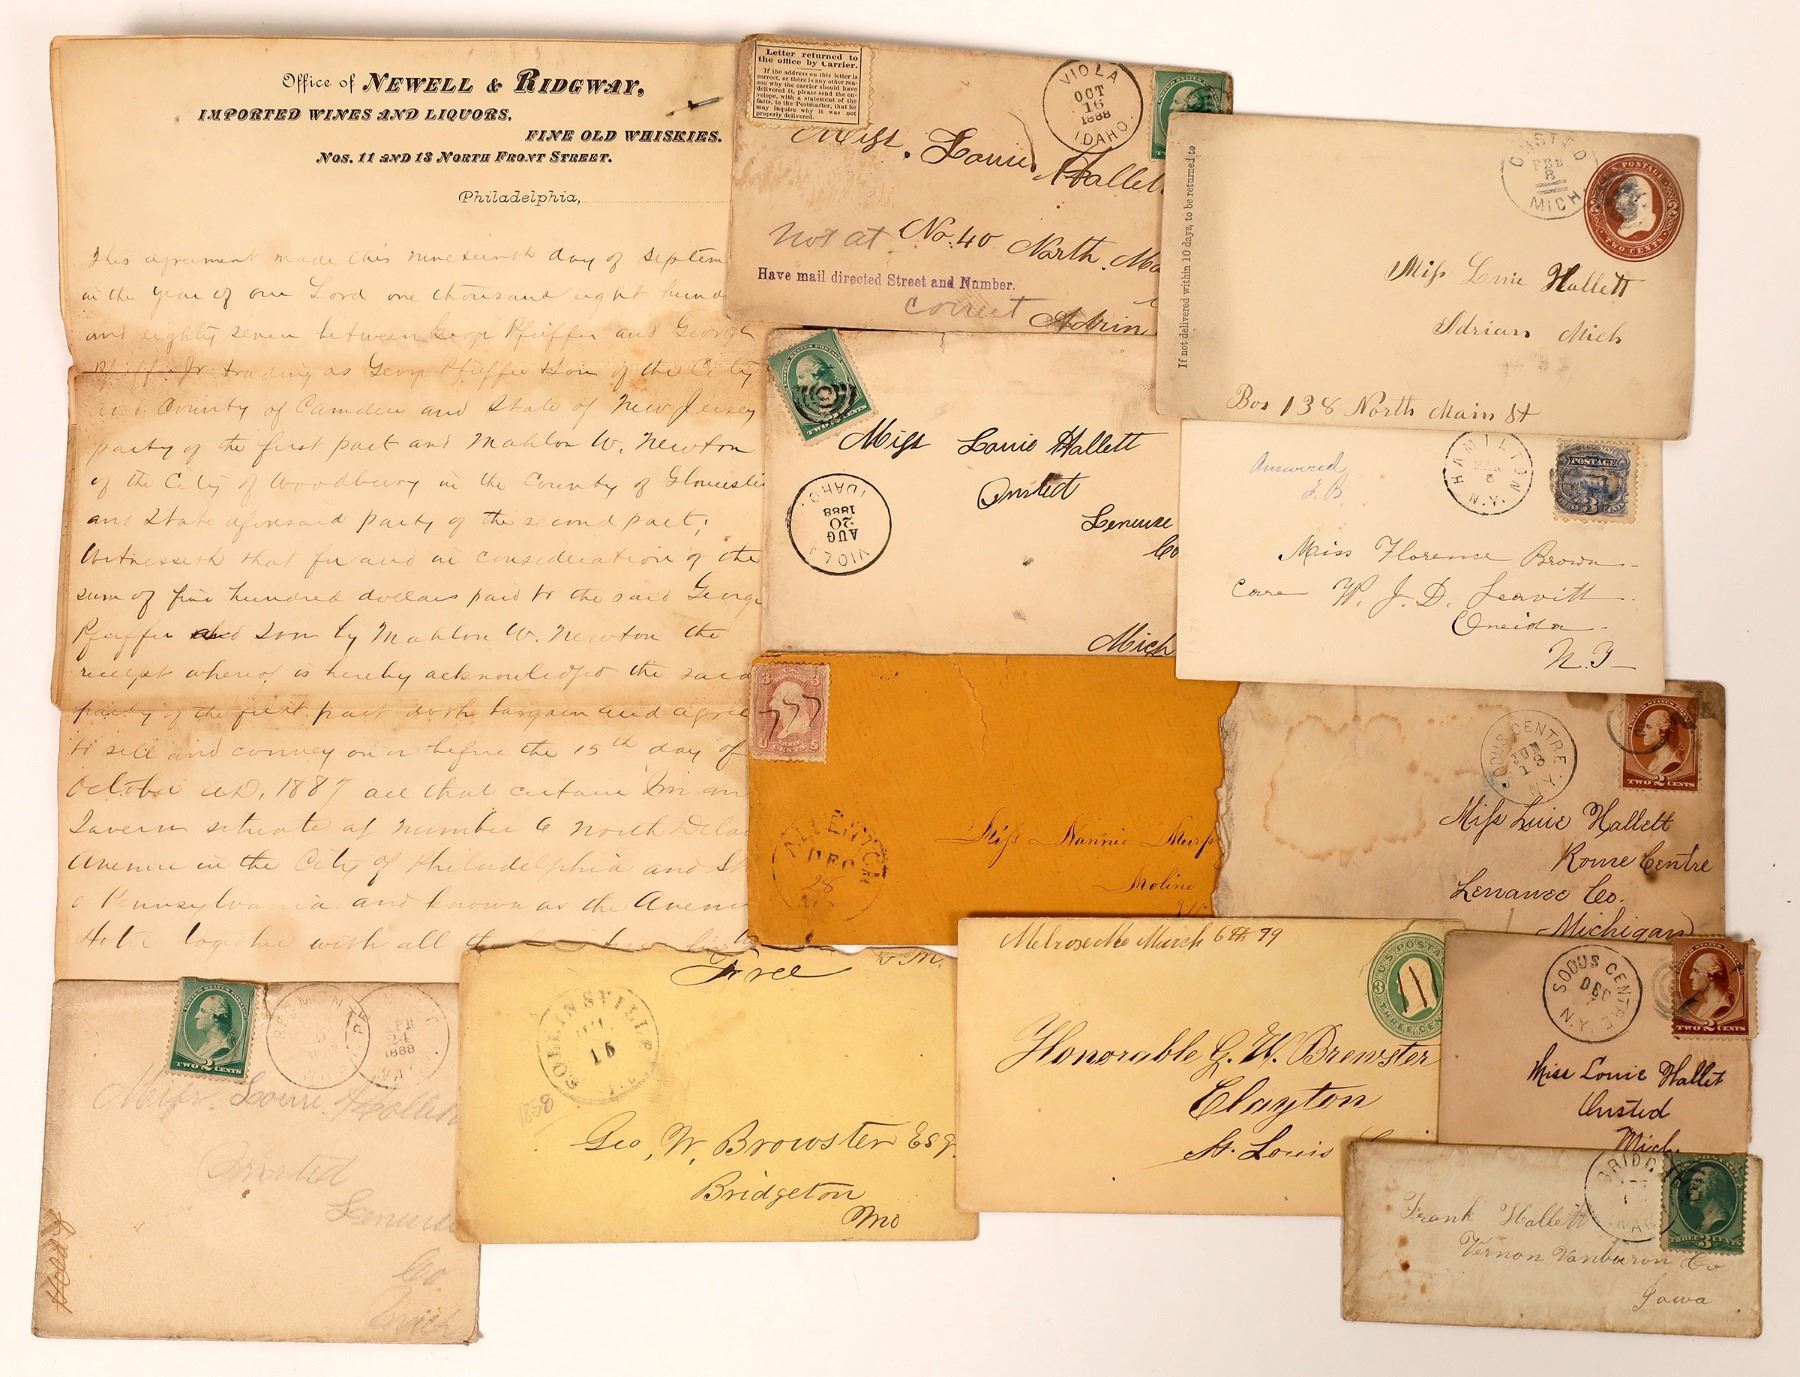 Office of NEWELL & RIDGWAY,
IMPORTED WINES AND LIQUORS,
FINE OLD WHISKIES.
Nos. 11 AND 13 NORTH FRONT STREET.
Philadelphia,
This agreament made this nineteenth day of Septem
in the year of our Lord one thousand eight hund
and eighty seven between George Pfeiffer and George
Pfeiff Jr. trading as George Pfeiffer & Son of the City
and County of Camden and State of New Jersey
party of the first part and Mahlon W. Newton
of the City of Woodbury in the County of Gloucester
and State aforesaid party of the second part;
Witnesseth that for and in consideration of the
sum of five hundred dollars paid to the said George
Pfeiffer and Son by Mahlon W. Newton the
receipt whereof is hereby acknowledged the said
party of the first part doth bargain and agree
to sell and convey on or before the 15th day of
October AD, 1887 all that certain Inn an
Tavern situate at number 6 North Dela
Avenue in the City of Philadelphia and St
Pennsylvania and known as the Avenu
Hotel together with all the
Letter returned to
the office by Carrier.
If the address on this letter is
correct, or there is any other rea-
son why the carrier should have
delivered it, please send the en-
velope, with a statement of the
facts, to the Postmaster, that he
may inquire why it was not
properly delivered.
VIOLA
OCT
16
1888
IDAHO.
Miss. Louie Hallett
not at No. 40 North. Ma
Have mail directed Street and Number.
correct Adrin
If not delivered within 10 days, to be returned to
ONSTED
FEB
8
MICH.
U.S. POSTAGE
TWO CENTS
Miss Louie Hallett
Adrian Mich
Box 138 North Main St
TWO 2 CENTS
Miss Louie Hallett
Onsted
Lenuwe
Co
Mich
VIOLA
AUG
20
1888
IDAHO.
Answered
F.B.
HAMILTON
N.Y.
POSTAGE
3
Miss Florence Brown
Care W. J. D. Leavitt
Oneida
N.Y
3 3
CENTS
ALLENTOWN
DEC
28
Miss Nannie Murp
Moline
SODUS CENTRE
JUN
13
N.Y.
TWO 2 CENTS
Miss Luie Hallett
Rome Centre
Lenawee Co.
Michigan
TWO 2 CENTS
FEB
24
1888
Miss. Louie Hallett
Onsted
Lenuwe
Co
Mich
Free
COLLINSVILLE
15
1858
Geo. W. Browster Esq.
Bridgeton
Mo
Melrose Mo March 6th 79
U.S. POSTAGE
3
THREE CEN
Honorable G. W. Brewster
Clayton
St. Louis
SODUS CENTRE
DEC
7
N.Y.
TWO 2 CENTS
Miss Louie Hallet
Onsted
Mich.
THREE 3 CENTS
Frank Hallett
Vernon Vanburon Co
Iowa